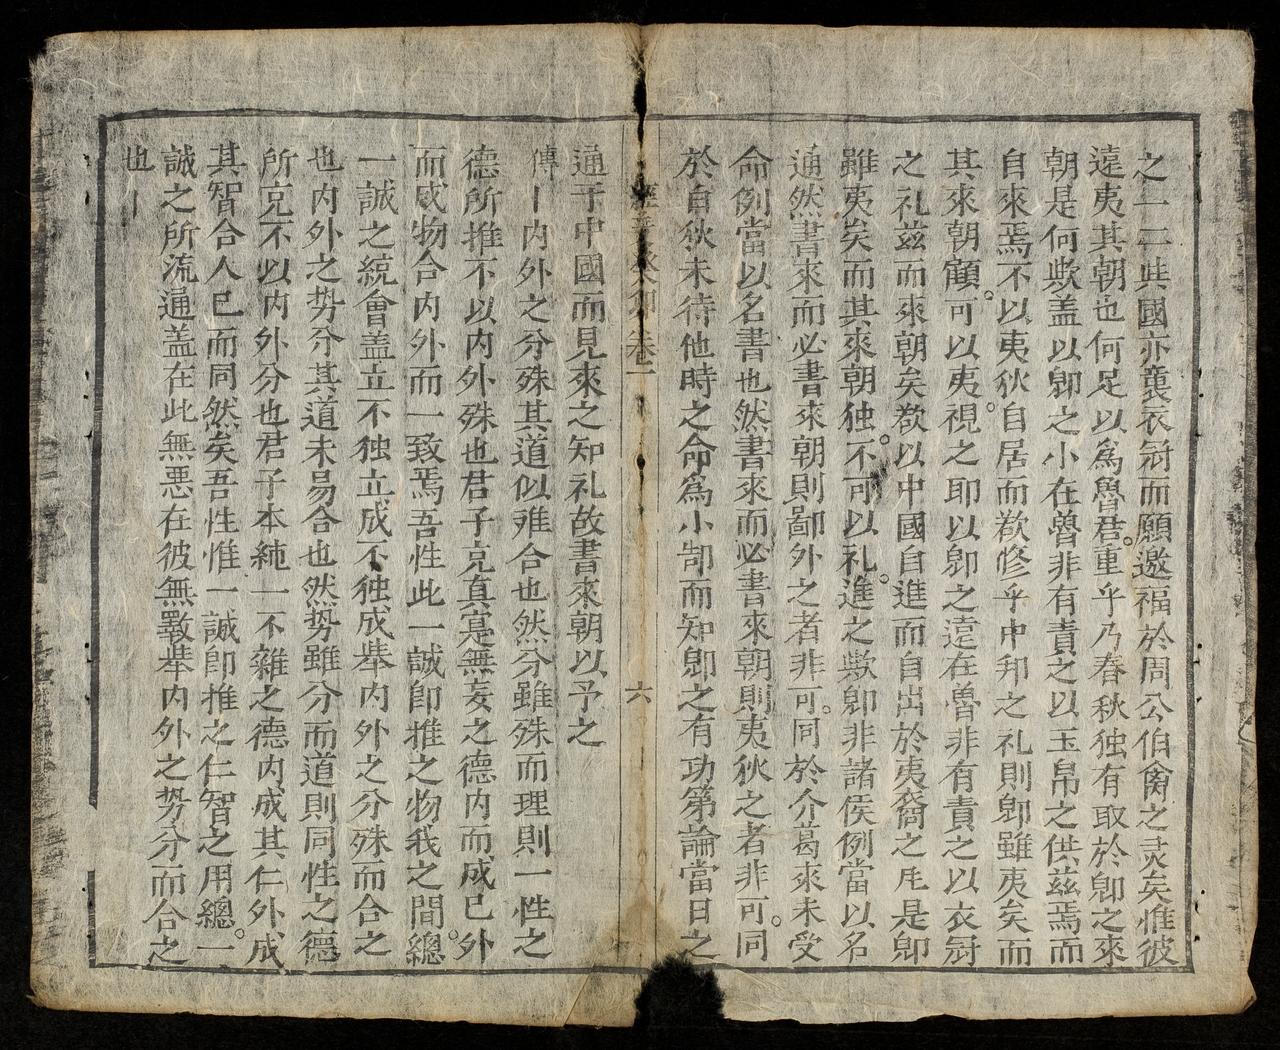 之一二共國亦襲衣冠而願邀福於周公伯禽之灵矣惟彼
遠夷其朝也何足以為魯君重乎乃春秋独有取於郳之來
朝是何歟盖以郳之小在魯非有責之以玉帛之供兹焉而
自來焉不以夷狄自居而欲修乎中邦之礼則郳雖夷矣而
其來朝顧可以夷視之耶以郳之遠在魯非有責之以衣冠
之礼兹而來朝矣欲以中國自進而自出於夷裔之尾是郳
雖夷矣而其來朝独不可以礼進之歟郳非諸侯例當以名
通然書來而必書來朝則鄙外之者非可同於介葛來未受
命例當以名書也然書來而必書來朝則夷狄之者非可同
於白狄未待他時之命為小邾而知郳之有功第論當日之
通于中國而見來之知礼故書來朝以予之
傳｜內外之分殊其道似难合也然分雖殊而理則一性之
德所推不以内外殊也君子克真寔無妄之德内而成己外
而成物合内外而一致焉吾性此一誠卽推之物我之間總
一誠之統會盖立不独立成不独成举内外之分殊而合之
也内外之势分其道未易合也然势雖分而道則同性之德
所克不以内外分也君子本純一不雜之德内成其仁外成
其智合人己而同然矣吾性惟一誠卽推之仁智之用總一
誠之所流通盖在此無悪在彼無斁举内外之势分而合之
也｜
卷二
六